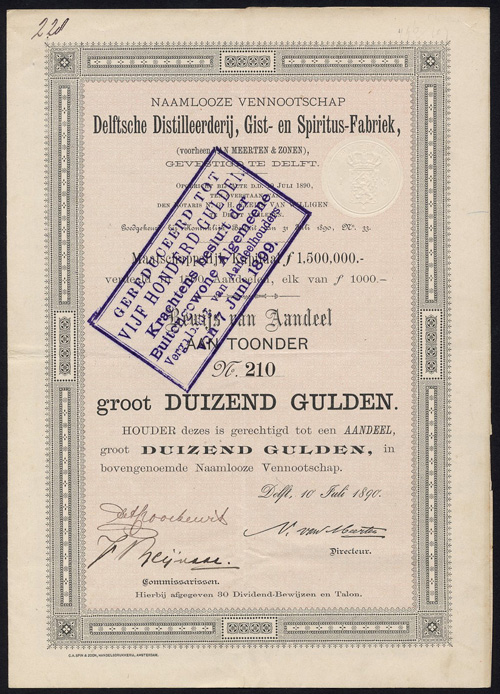 228
NAAMLOOZE VENNOOTSCHAP
Delftsche Distilleerderij, Gist- en Spiritus-Fabriek,
(voorheen VAN MEERTEN & ZONEN),
GEVESTIGD TE DELFT.
JULI 1890,
Juli 1890, No. 33.
Maatschappelijk Kapitaal f 1.500.000.-
verdeeld in 1500 Aandeelen, elk van f 1000.-
GEREDUCEERD TOT
VIJF HONDERD GULDEN
Krachtens besluit der
Buitengewone Algemeene
Vergadering van Aandeelhouders
van 7 Juni 1899.
Bewijs van Aandeel
AAN TOONDER
No. 210
groot DUIZEND GULDEN.
HOUDER dezes is gerechtigd tot een AANDEEL,
groot DUIZEND GULDEN, in
bovengenoemde Naamlooze Vennootschap.
Delft, 10 Juli 1890.
N. van Meerten
Directeur.
Commissarissen.
Hierbij afgegeven 30 Dividend-Bewijzen en Talon.